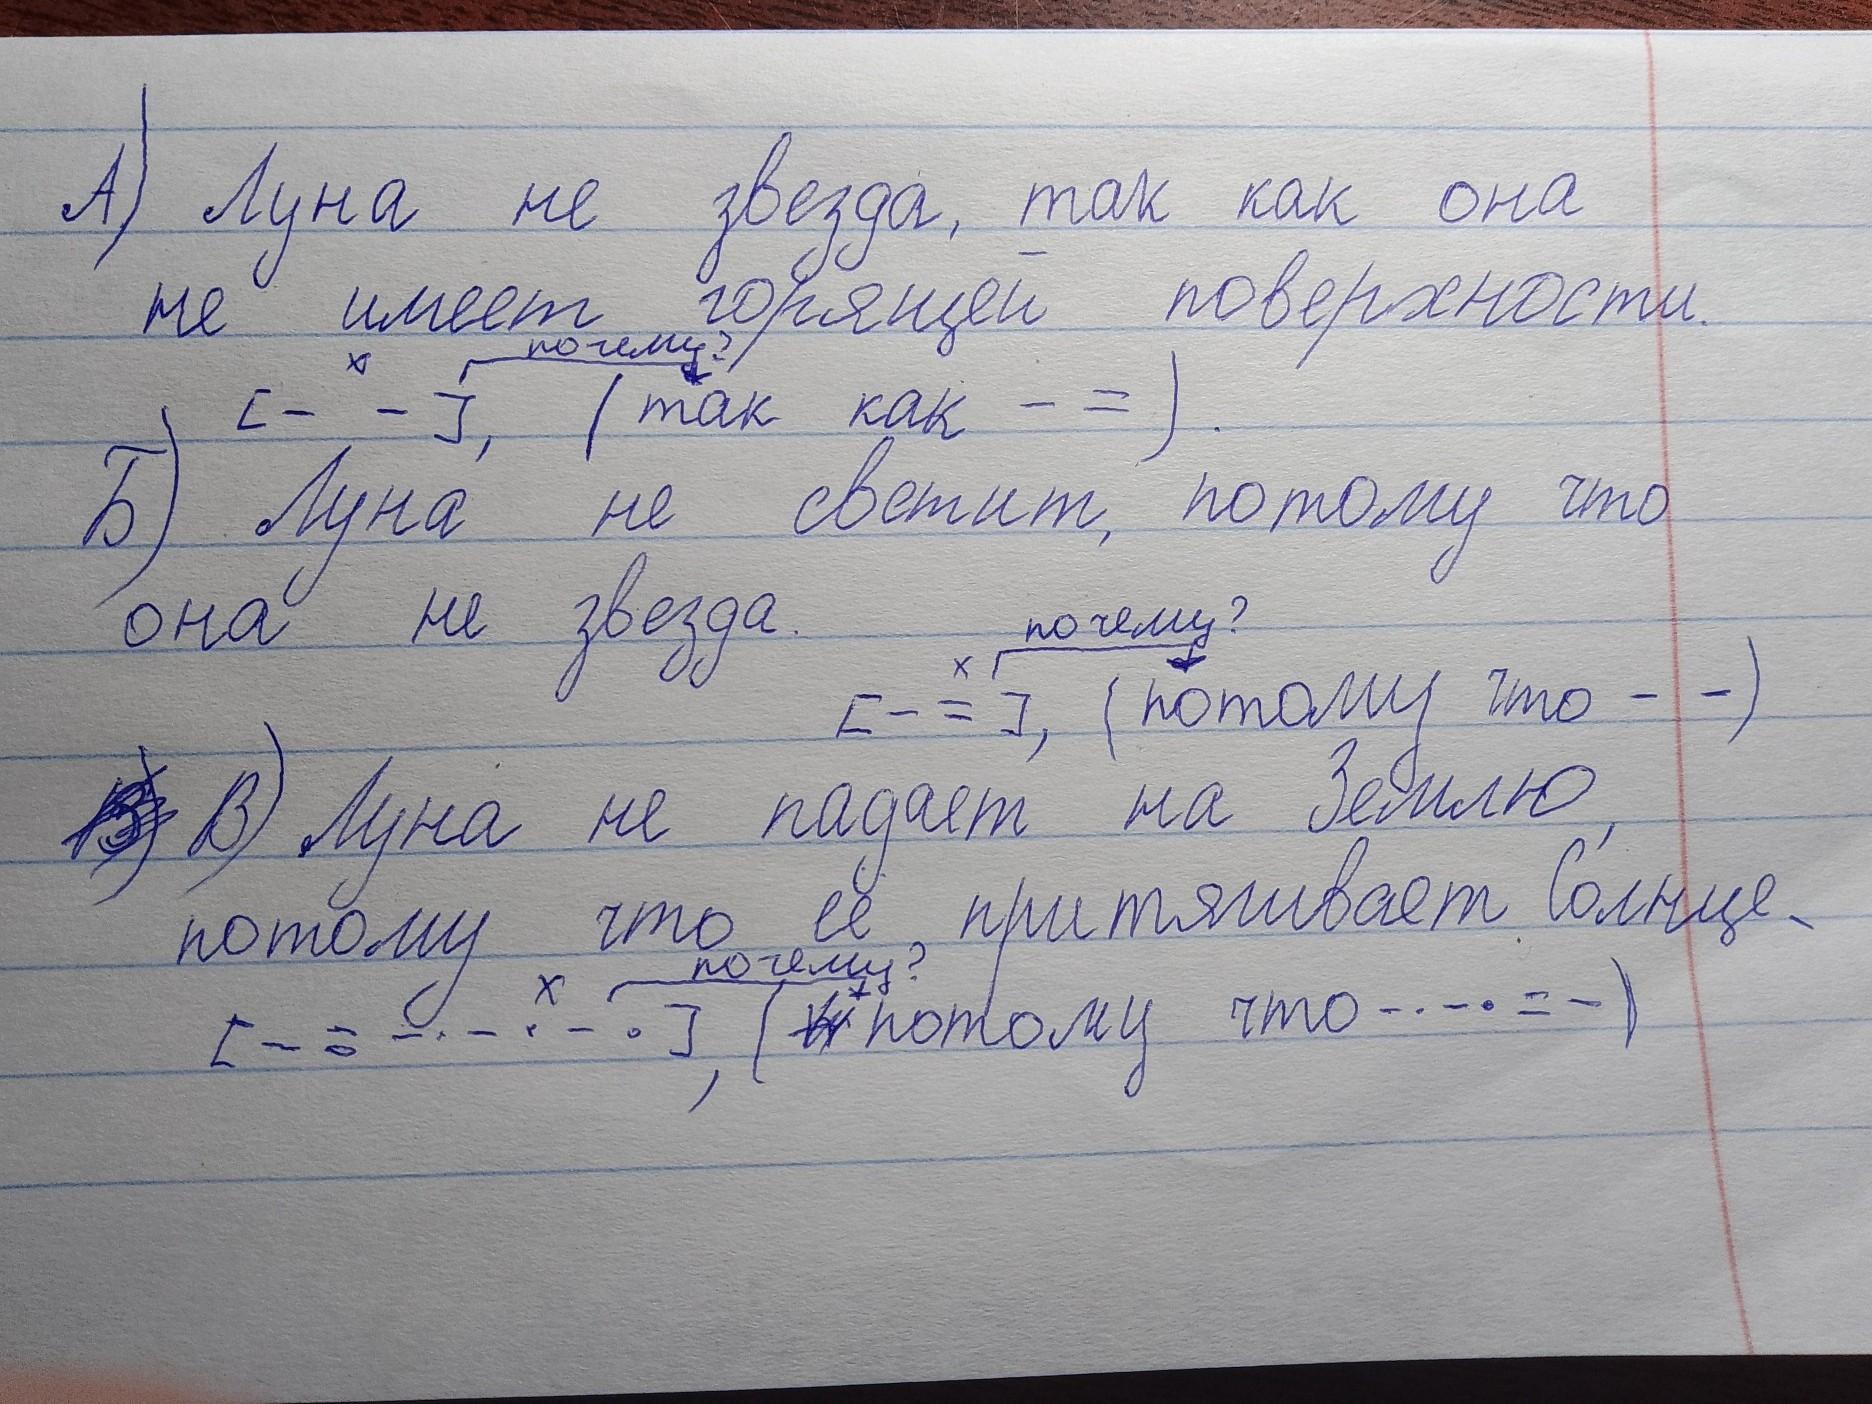 А) Луна не звезда, так как она
не имеет горящей поверхности.
почему?
х
[- -], (так как - =).
Б) Луна не светит, потому что
она не звезда.
почему?
х
[- =], (потому что - -)
В) Луна не падает на Землю,
потому что её притягивает Солнце.
почему?
х
[- = -·-·-·], (потому что -·-· = -)